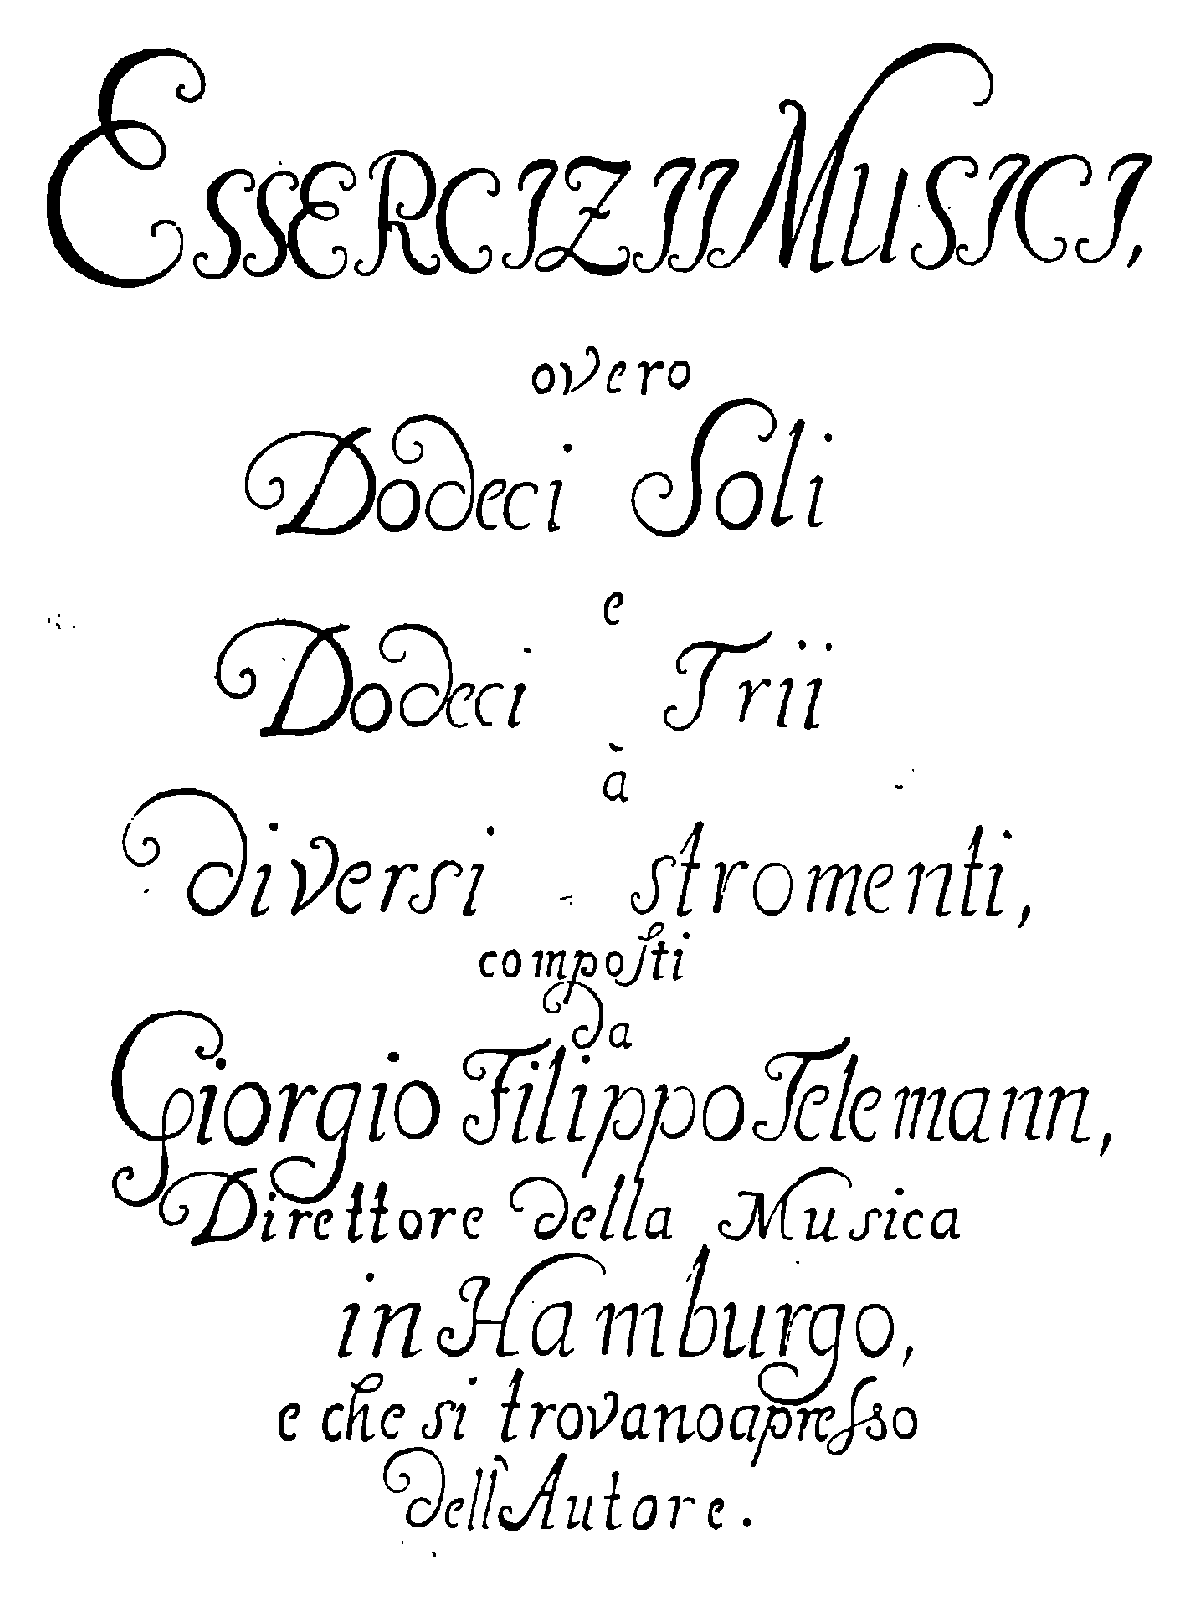 ESSERCIZII MUSICI,
overo
Dodeci Soli
e
Dodeci Trii
à
diversi stromenti,
compoſti
da
Giorgio Filippo Telemann,
Direttore della Musica
in Hamburgo,
e che si trovano apreſso
dell'Autore.